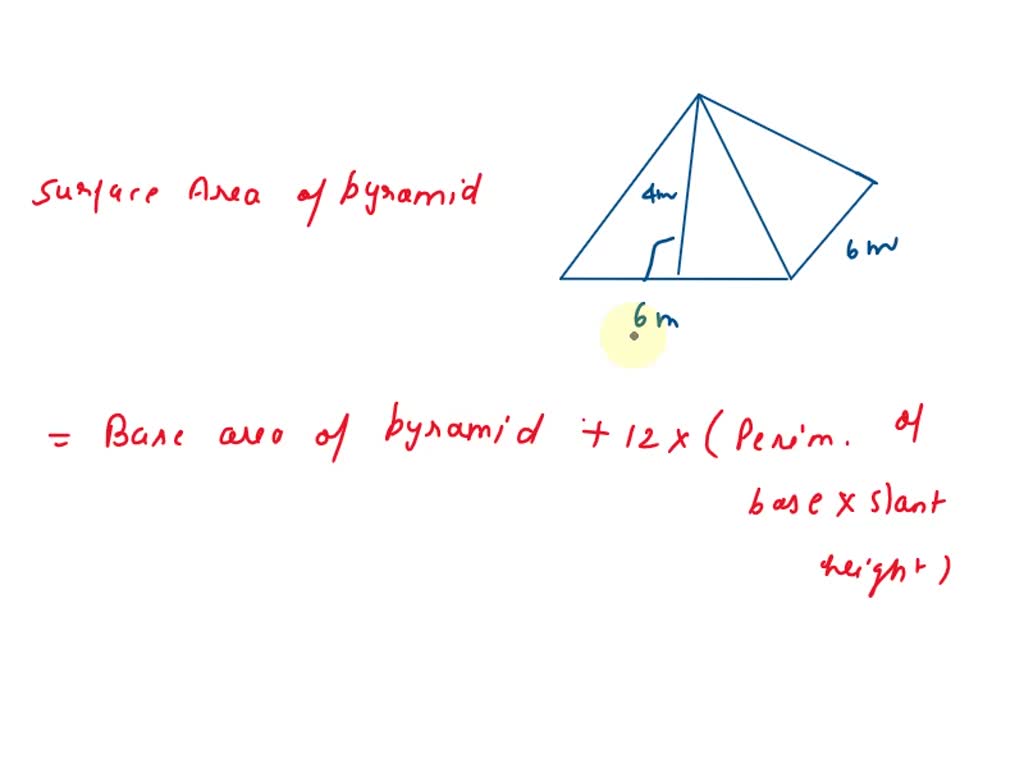 Surface Area of byramid
4m
6m
6m
= Base area of byramid + 12 x ( Perim. of
base x slant
height )